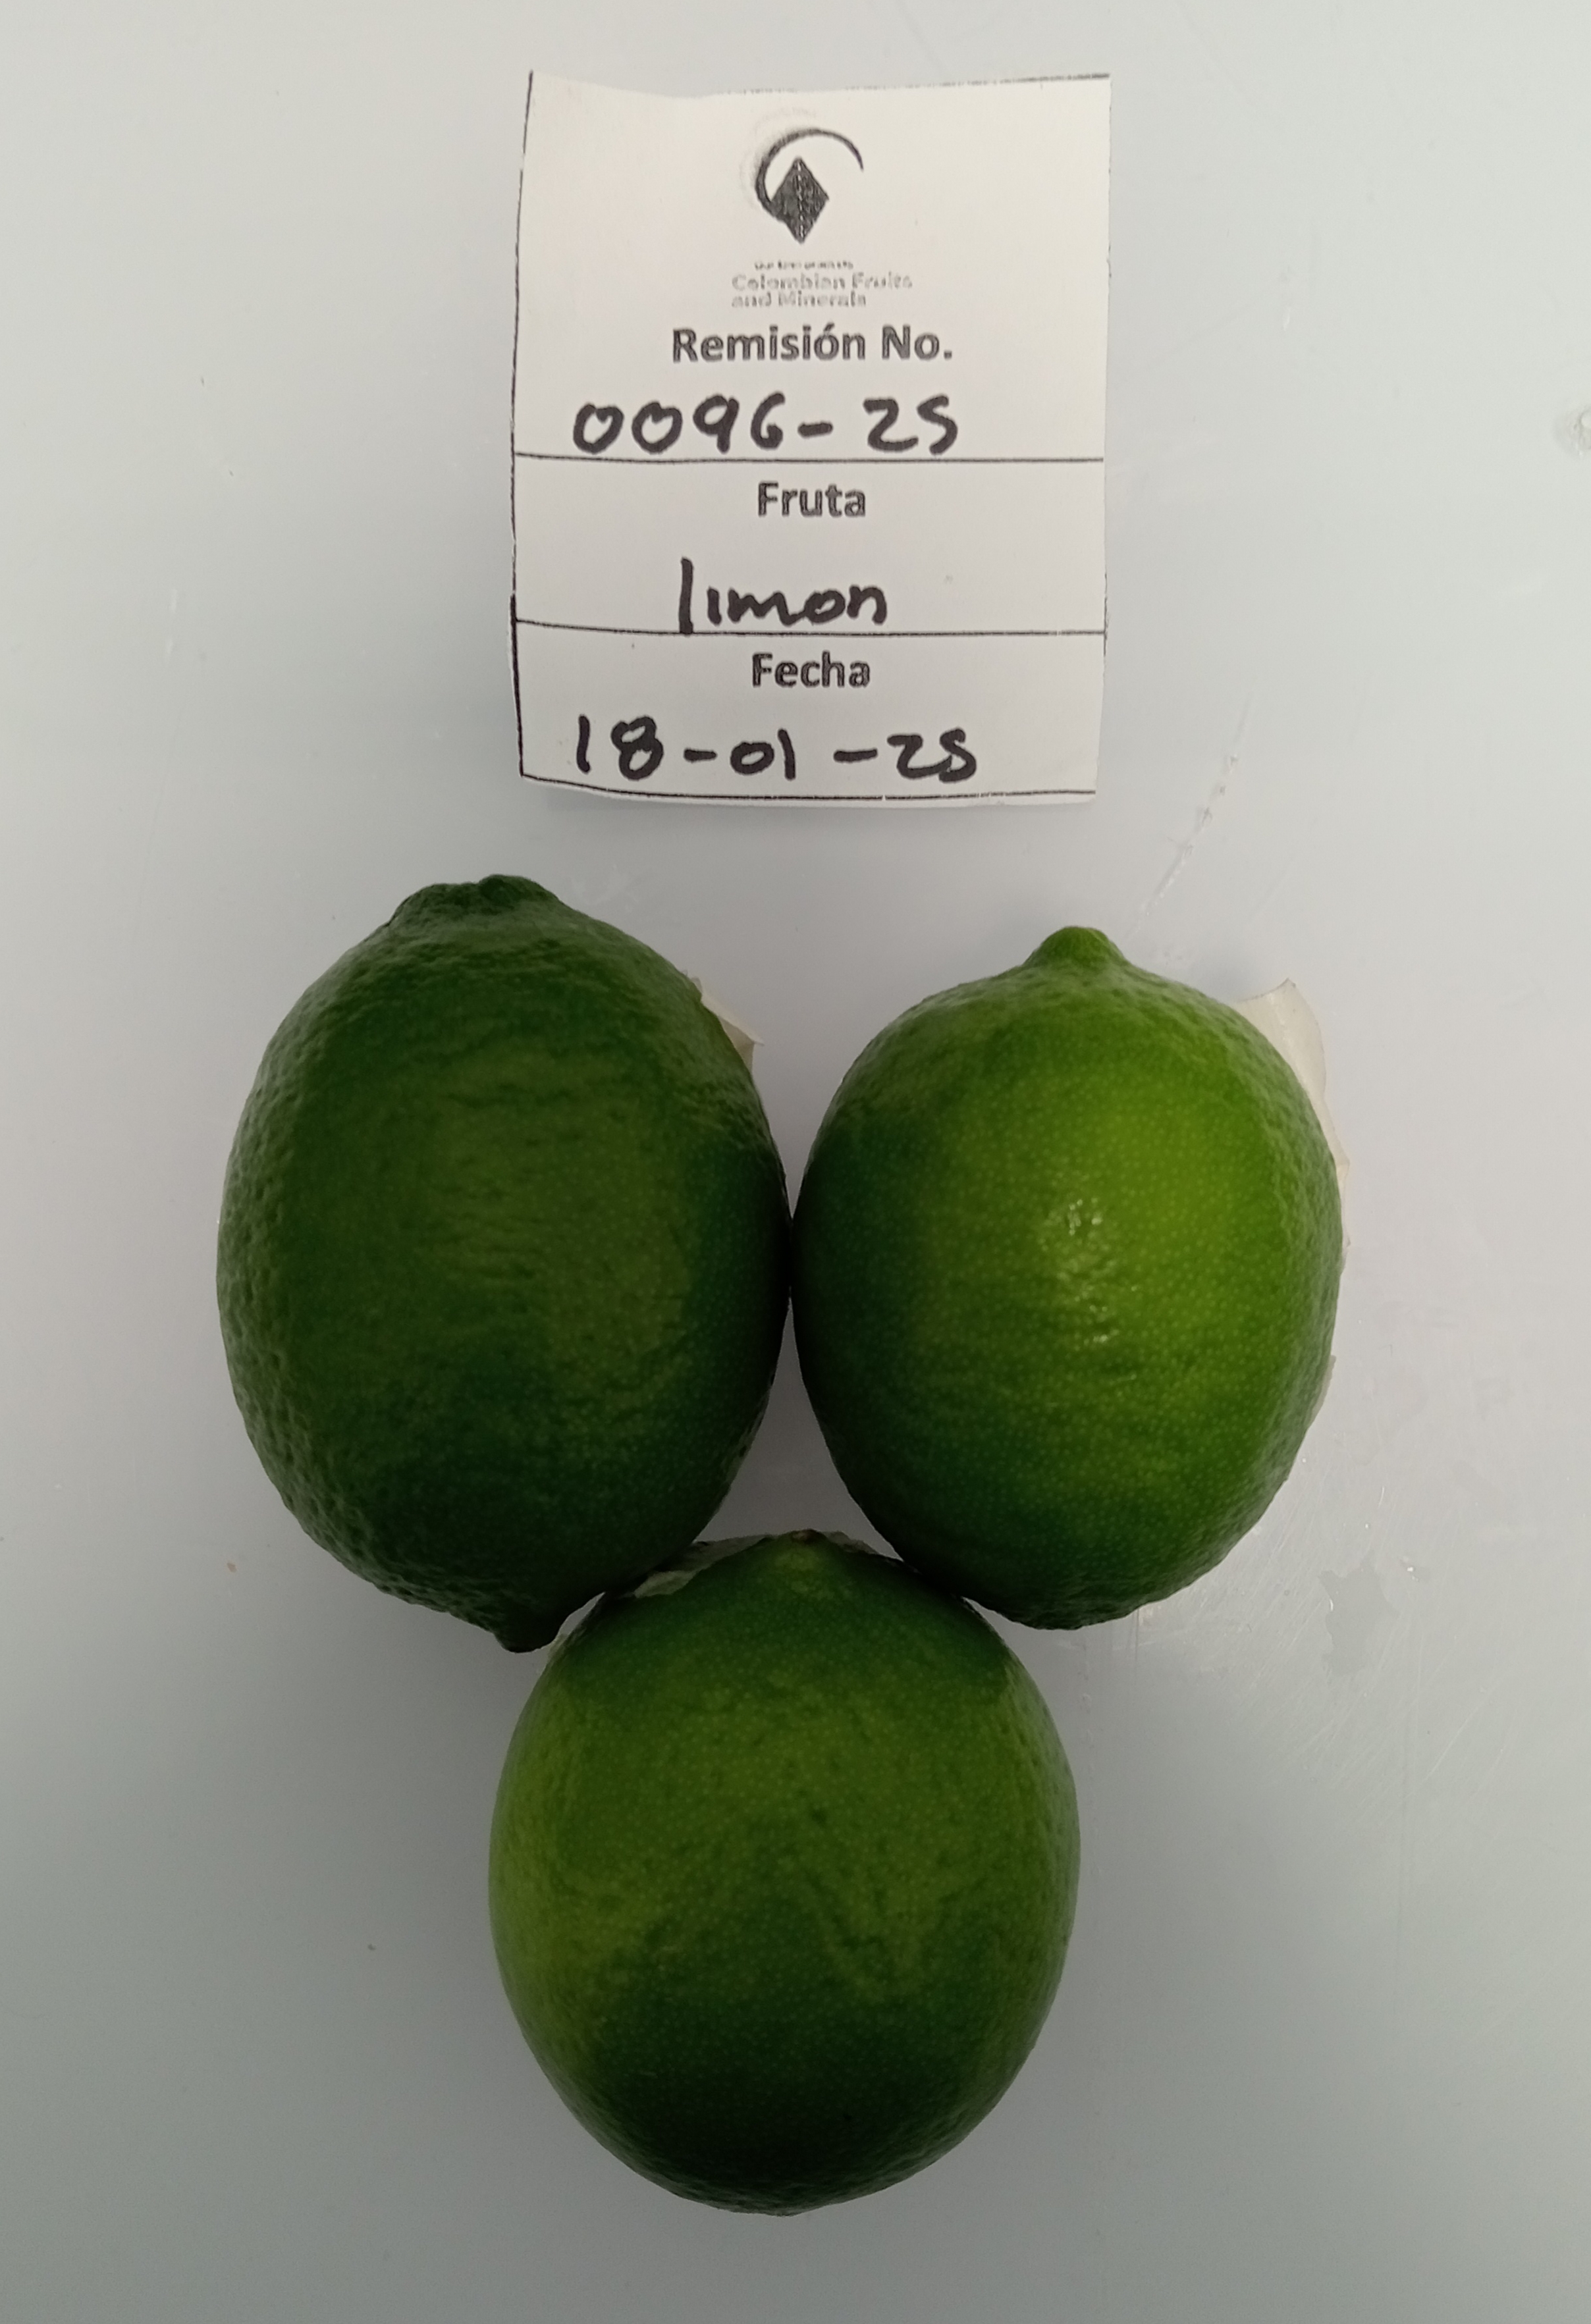 Colombian Fruits
and Minerals
Remisión No.
0096-25
Fruta
limon
Fecha
18-01-25